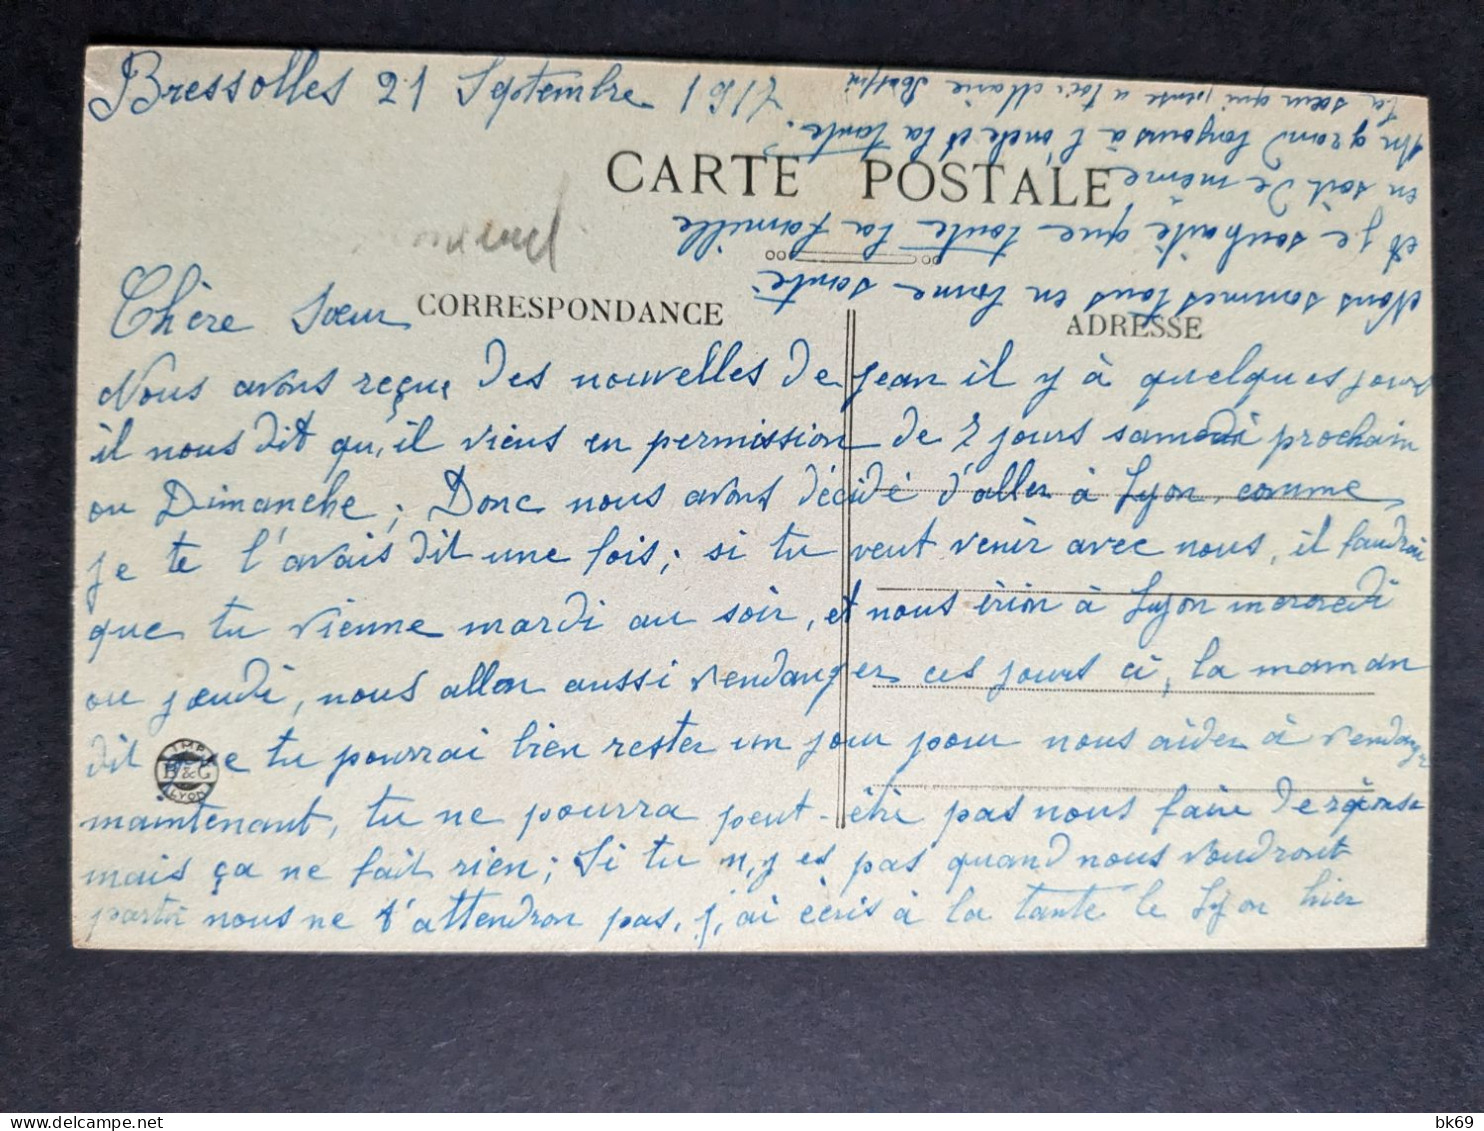 Bressolles 21 Septembre 1917
CARTE POSTALE
CORRESPONDANCE
ADRESSE
Chère Sœur
Nous avons reçue des nouvelles de jean il y à quelques jours
il nous dit qu'il viens en permission de 7 jours samedi prochain
ou Dimanche; Donc nous avons décidé d'aller à Lyon, comme
je te l'avais dit une fois; si tu veut venir avec nous, il faudrai
que tu vienne mardi au soir, et nous irion à Lyon mercredi
ou jeudi, nous allon aussi vendanger ces jours ci, la maman
dit que tu pourrai bien rester un jour pour nous aider à vendange
maintenant, tu ne pourra peut-être pas nous faire de réponse
mais ça ne fait rien; Si tu n'y es pas quand nous voudront
partir nous ne t'attendron pas, j'ai écris à la tante de Lyon hier
Nous sommes tous en bonne santé
et je souhaite que toute la famille
en soit de même
Un grand bonjours à l'oncle et la tante.
Ta sœur qui pense a toi Marie
IMP. B&G LYON
bk69